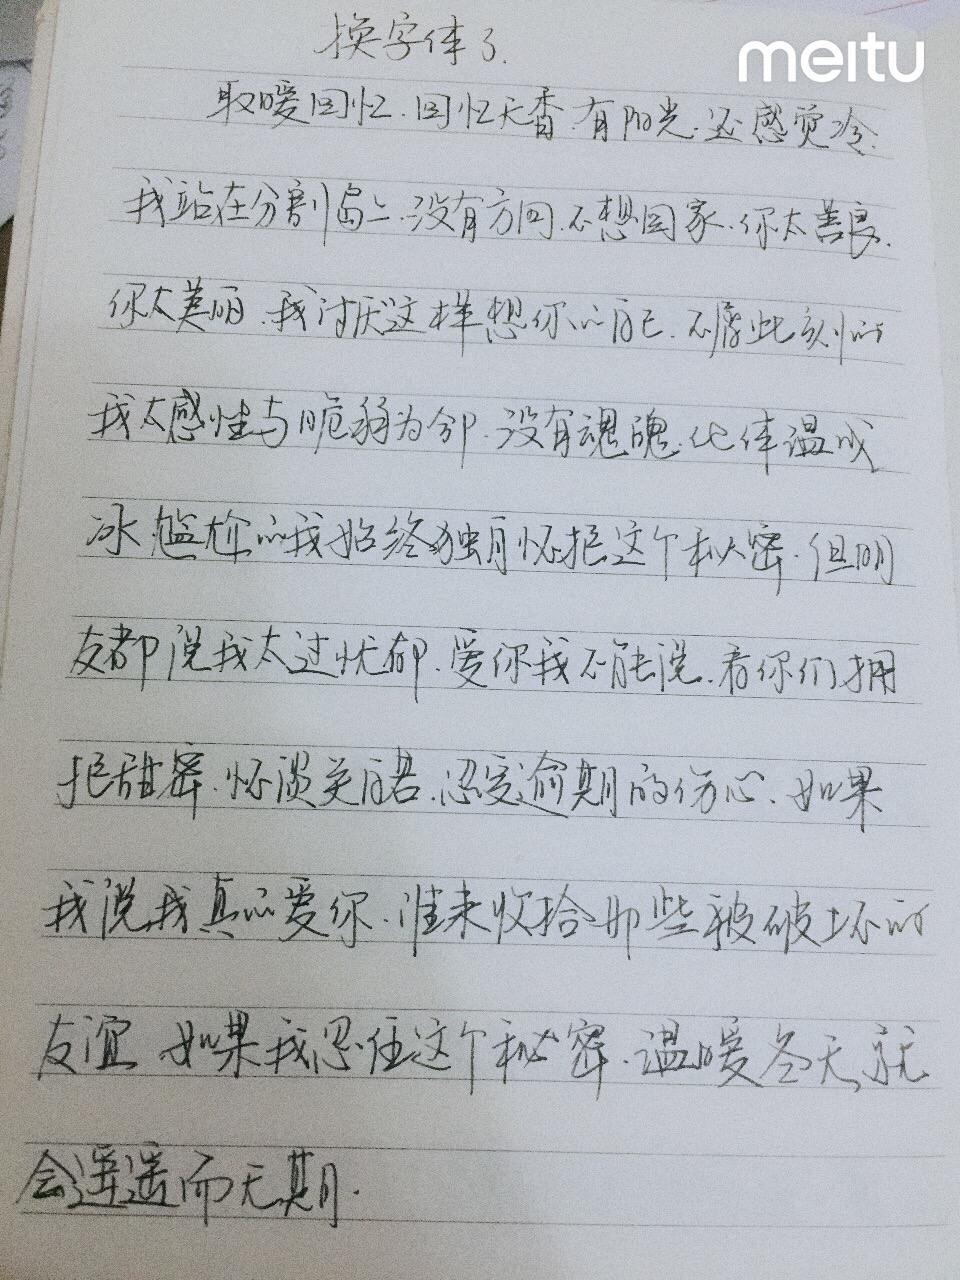 meitu
换字体了.
取暖回忆.回忆无香.有阳光.还感觉冷.
我站在分割岛上.没有方向.不想回家.你太善良.
你太美丽.我讨厌这样想你的自己.不屑此刻的
我太感性与脆弱为邻.没有魂魄.化体温成
冰.尴尬的我始终独自怀抱这个秘密.但朋
友都说我太过忧郁.爱你我不能说.看你们拥
抱甜蜜.怀误关后.忍受逾期的伤心.如果
我说我真的爱你.谁来收拾那些被破坏的
友谊 如果我忍住这个秘密.温暖冬天就
会遥遥而无期.